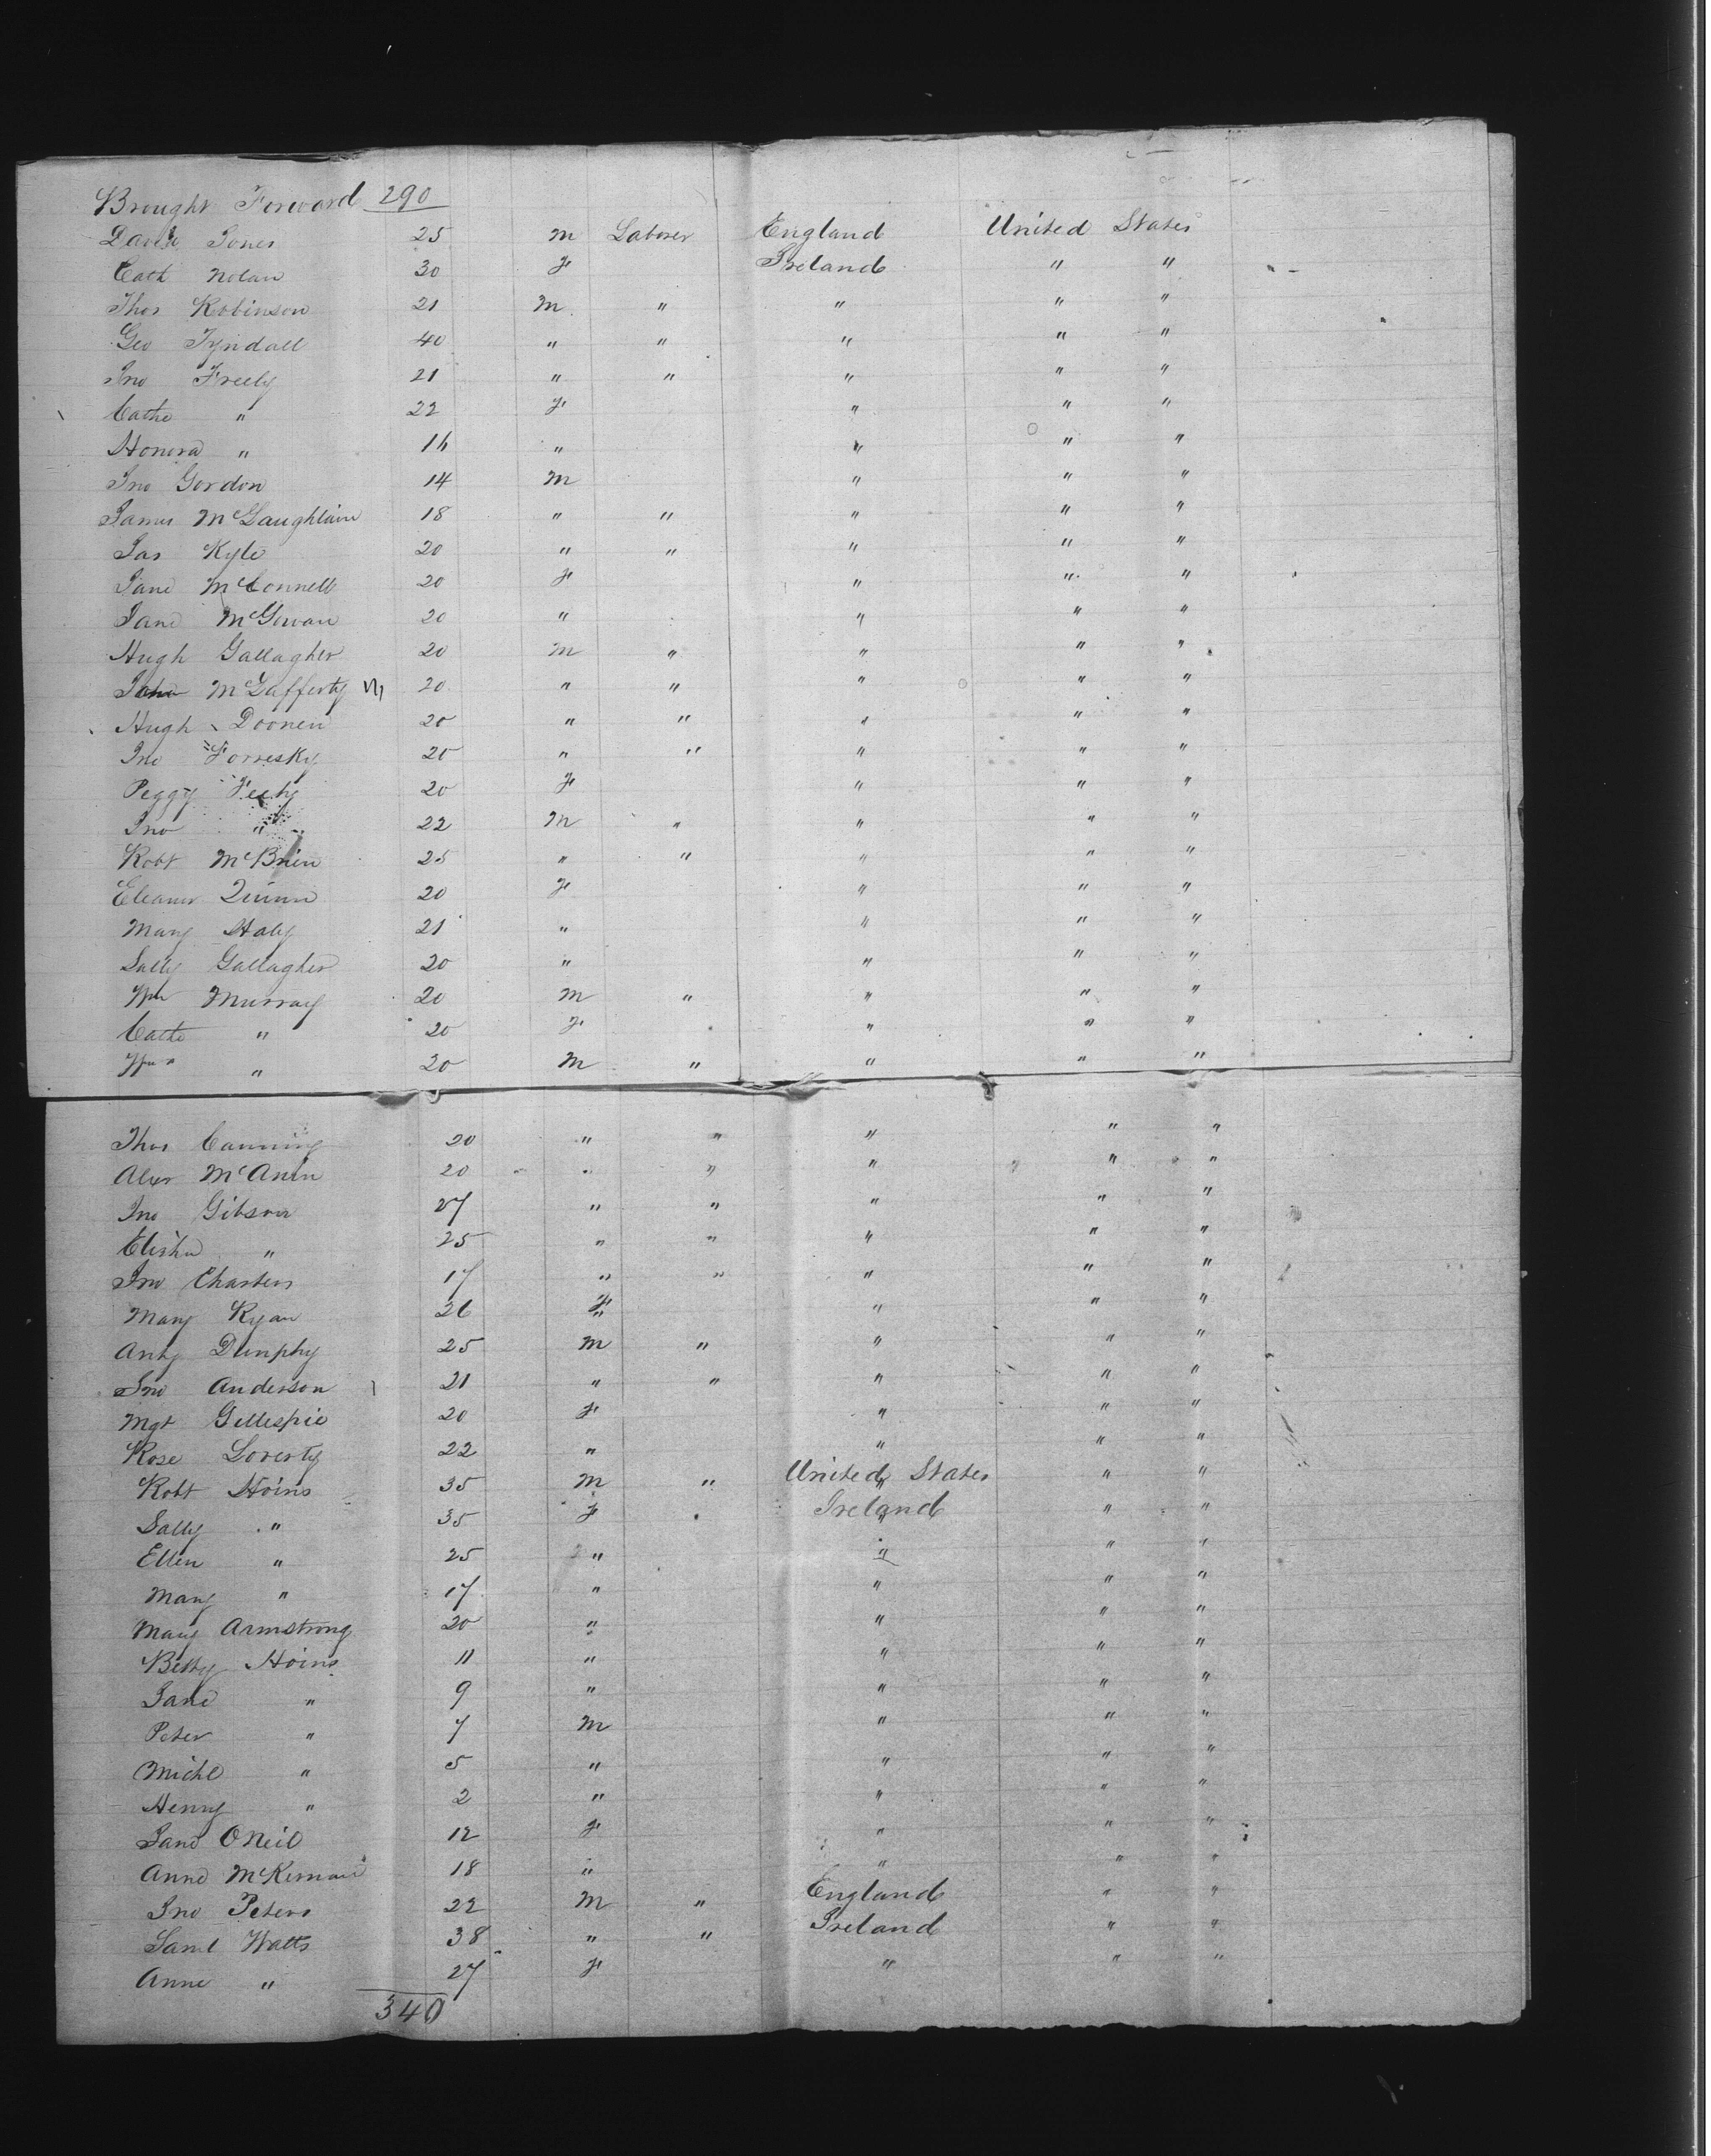 Brought Forward 290
David Jones 25 M Laborer England United States
Cath Nolan 30 F Ireland " "
Thos Robinson 21 M " " " "
Geo Tyndall 40 " " " " "
Jno Freely 21 " " " " "
Cathe " 22 F " " "
Honora " 16 " " " "
Jno Gordon 14 M " " "
James McLaughlain 18 " " " " "
Jas Kyle 20 " " " " "
Jane McConnell 20 F " " "
Jane McGowan 20 " " " "
Hugh Gallagher 20 M " " " "
John McLafferty 20 " " " " "
Hugh Doonen 20 " " " " "
Jno 20 " " " " "
Peggy Feely 20 F " " "
Jno " 22 M " " " "
Robt McBrien 25 " " " " "
Eleanor Quinn 20 F " " "
Mary Haly 21 " " " "
Sally Gallagher 20 " " " "
Wm Murray 20 M " " " "
Cathe " 20 F " " "
Wm " 20 M " " " "
Thos Canning 20 " " " " "
Alexr 20 " " " " "
Jno Gibson 27 " " " " "
Elisha " 25 " " " " "
Jno Charters 17 " " " " "
Mary Ryan 26 F " " "
Anty Dunphy 25 M " " " "
Jno Anderson 21 " " " " "
Mgt Gillespie 20 F " " "
Rose 22 " " " "
Robt Hoins 35 M " United States " "
Sally " 35 F Ireland " "
Ellen " 25 " " " "
Mary " 17 " " " "
Mary Armstrong 20 " " " "
Betty Hoins 11 " " " "
Jane " 9 " " " "
Peter " 7 M " " "
Michl " 5 " " " "
Henry " 2 " " " "
Jane ONeil 12 F " " "
Anne McKernan 18 " " " "
Jno Peters 22 M " England " "
Saml Watts 38 " " Ireland " "
Anne " 27 F " " "
340